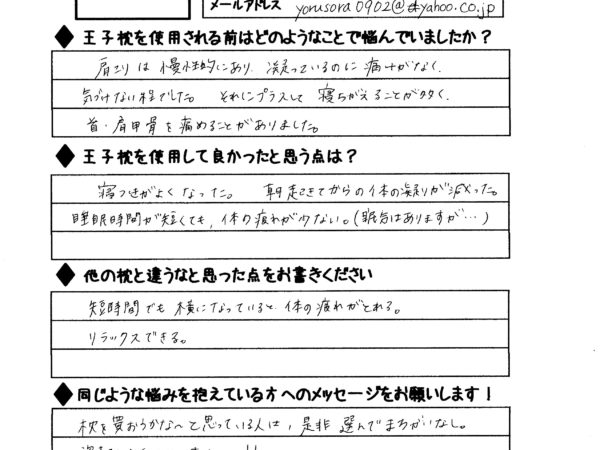 メールアドレス yorusora0902@yahoo.co.jp
◆王子枕を使用される前はどのようなことで悩んでいましたか？
肩こりは慢性的にあり、凝っているのに痛みがなく、
気づけない程でした。それにプラスして寝ちがえることが多く、
首・肩甲骨を痛めることがありました。
◆王子枕を使用して良かったと思う点は？
寝つきがよくなった。朝起きてからの体の凝りが減った。
睡眠時間が短くても、体の疲れが少ない。(眠気はありますが…)
◆他の枕と違うなと思った点をお書きください
短時間でも横になっていると体の疲れがとれる。
リラックスできる。
◆同じような悩みを抱えている方へのメッセージをお願いします！
枕を買おうかな～と思っている人は、是非選んでまちがいなし。